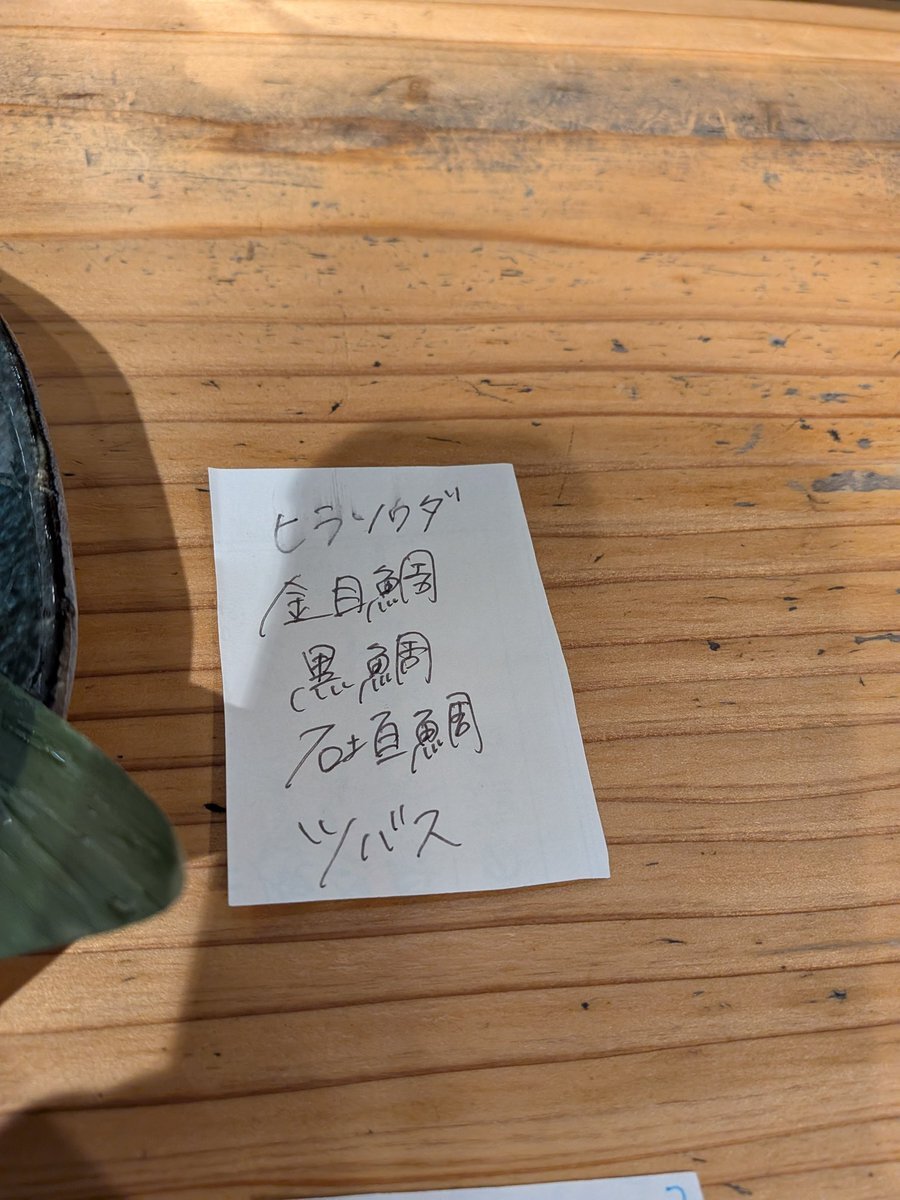 ヒラソウダ
金目鯛
黒鯛
石垣鯛
ツバス